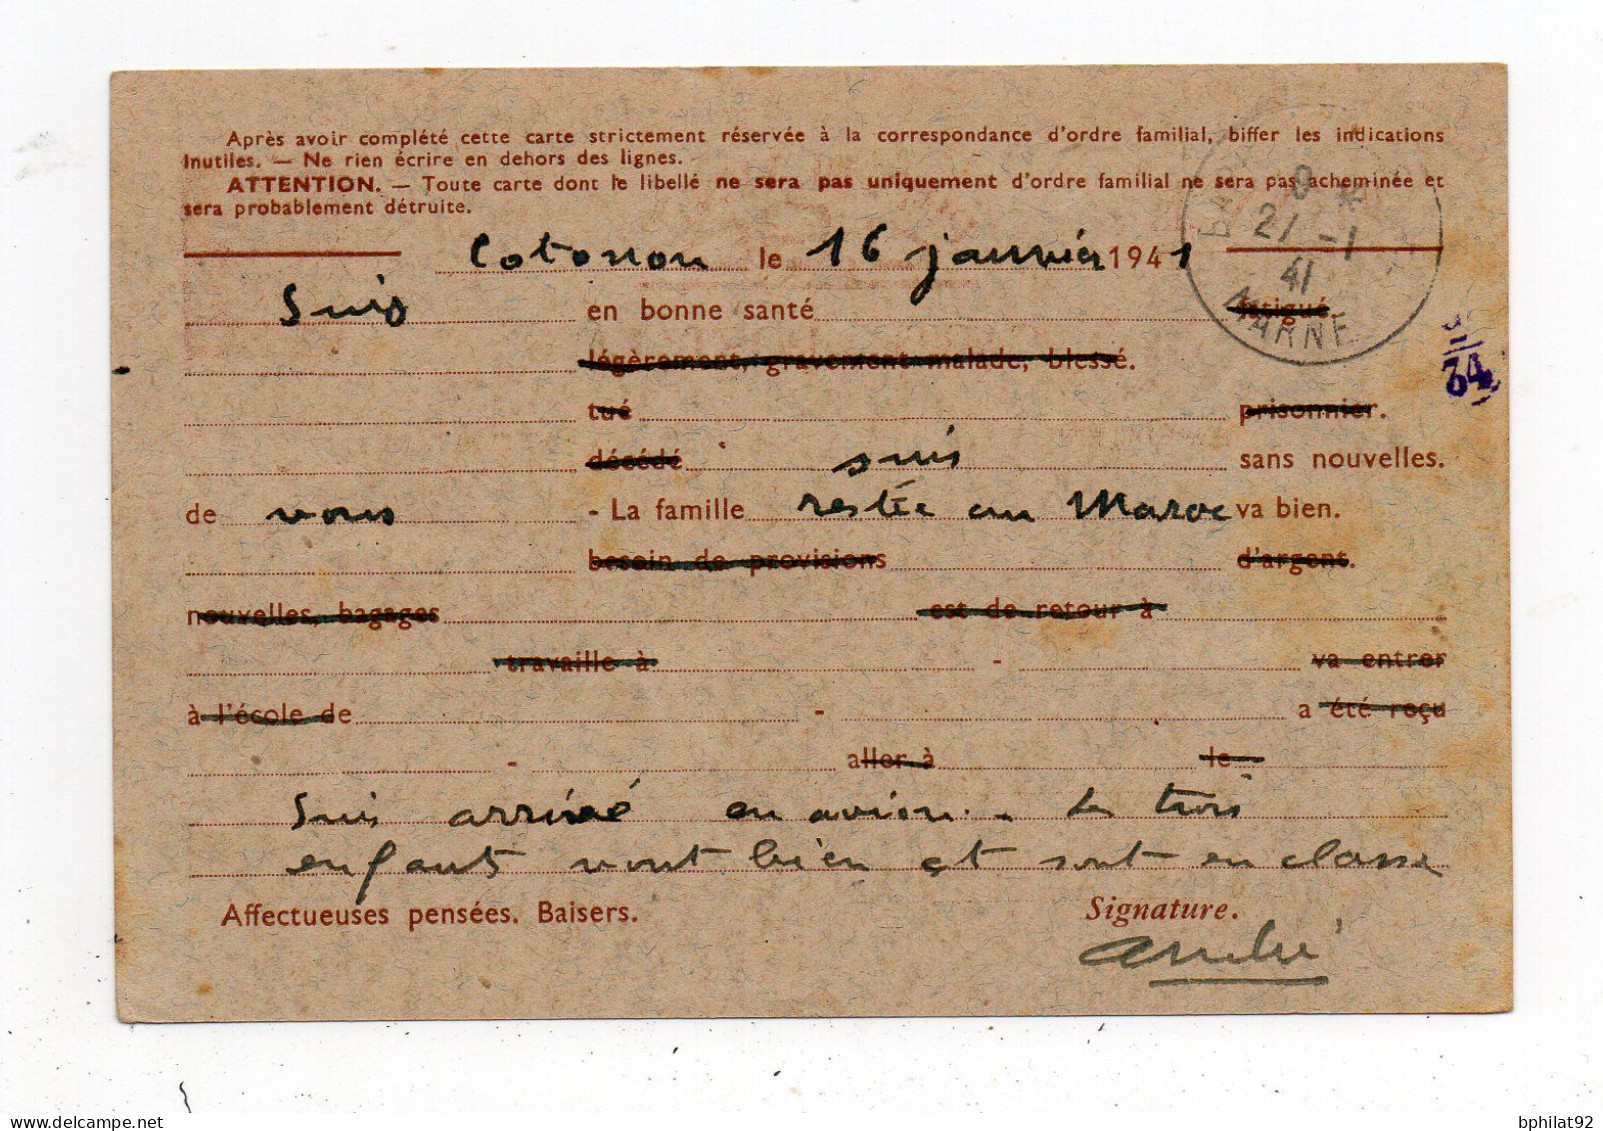 Après avoir complété cette carte strictement réservée à la correspondance d'ordre familial, biffer les indications
inutiles. — Ne rien écrire en dehors des lignes.
ATTENTION. — Toute carte dont le libellé ne sera pas uniquement d'ordre familial ne sera pas acheminée et
sera probablement détruite.
Cotonou le 16 janvier 1941
Suis en bonne santé fatigué.
légèrement, gravement malade, blessé.
tué prisonnier.
décédé suis sans nouvelles.
de vous - La famille restée au Maroc va bien.
besoin de provisions d'argent.
nouvelles, bagages est de retour à
travaille à - va entrer
à l'école de - a été reçu
- aller à le
Suis arrivé en avion. - Les trois
enfants vont bien et sont en classe
Affectueuses pensées. Baisers. Signature.
André
21 -1
41
MARNE
34
bphilat92